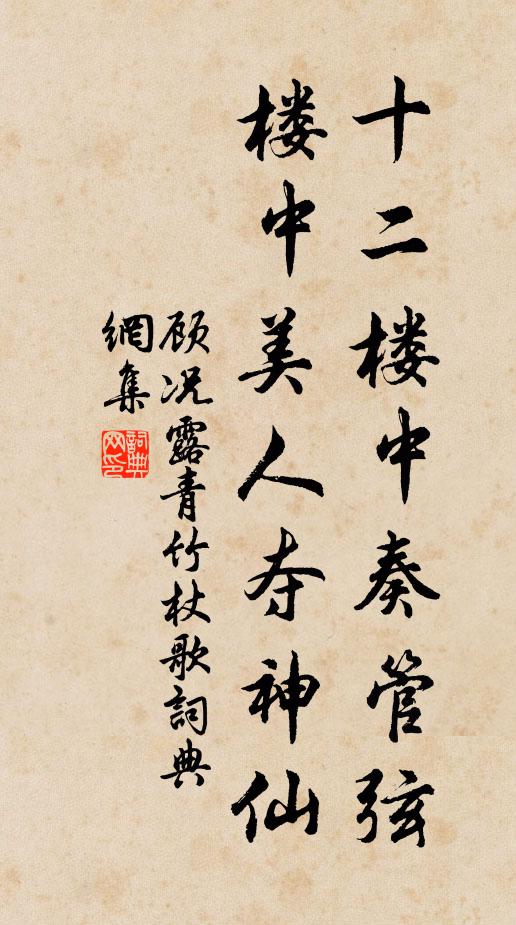 十二楼中奏管弦
楼中美人夺神仙
顾况露青竹杖歌詞典
網集
詞典
网印